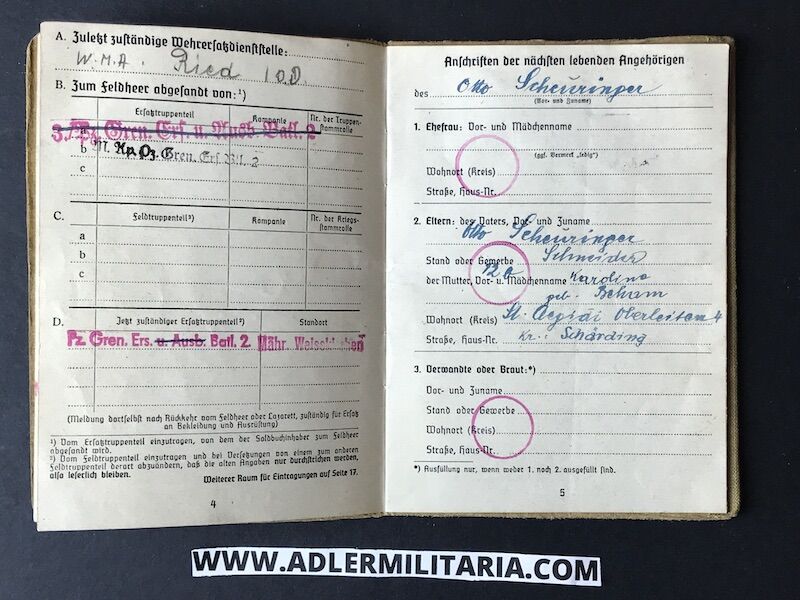 A. Zuletzt zuständige Wehrersatzdienststelle:
W.M.A. Ried
B. Zum Feldheer abgesandt von:¹)
Ersatztruppenteil
Kompanie
Nr. der Truppenstammrolle
a
3./Pz. Gren. Ers. u. Ausb. Batl. 2
b
Pz. Gren. Ers. Btl. 2
c
C.
Feldtruppenteil²)
Kompanie
Nr. der Kriegsstammrolle
a
b
c
D.
Jetzt zuständiger Ersatztruppenteil²)
Standort
Pz. Gren. Ers. u. Ausb. Batl. 2
Mähr.
(Meldung dortselbst nach Rückkehr vom Feldheer oder Lazarett, zuständig für Ersatz
an Bekleidung und Ausrüstung)
¹) Vom Ersatztruppenteil einzutragen, von dem der Soldbuchinhaber zum Feldheer
abgesandt wird.
²) Vom Feldtruppenteil einzutragen und bei Versetzungen von einem zum anderen
Feldtruppenteil derart abzuändern, daß die alten Angaben nur durchstrichen werden,
also leserlich bleiben.
Weiterer Raum für Eintragungen auf Seite 17.
4
Anschriften der nächsten lebenden Angehörigen
des Otto Scheuringer
(Vor- und Zuname)
1. Ehefrau: Vor- und Mädchenname
(ggf. Vermerk „ledig“)
Wohnort (Kreis)
Straße, Haus-Nr.
2. Eltern: des Vaters, Vor- und Zuname
Otto Scheuringer
Stand oder Gewerbe Schneider
12a
der Mutter, Vor- u. Mädchenname Karolina
geb.
Wohnort (Kreis) St. Aegidi Oberleiten 4
Straße, Haus-Nr. Kr. Schärding
3. Verwandte oder Braut:*)
Vor- und Zuname
Stand oder Gewerbe
Wohnort (Kreis)
Straße, Haus-Nr.
*) Ausfüllung nur, wenn weder 1. noch 2. ausgefüllt sind.
5
WWW.ADLERMILITARIA.COM